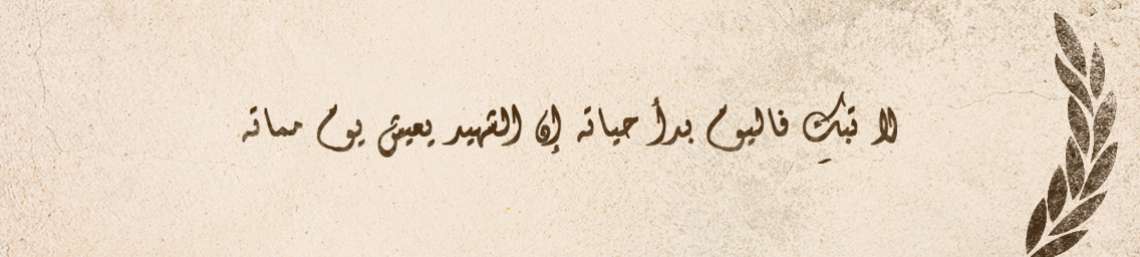 لا تبكِ فاليوم بدأ حياته إن الشهيد يعيش يوم مماته